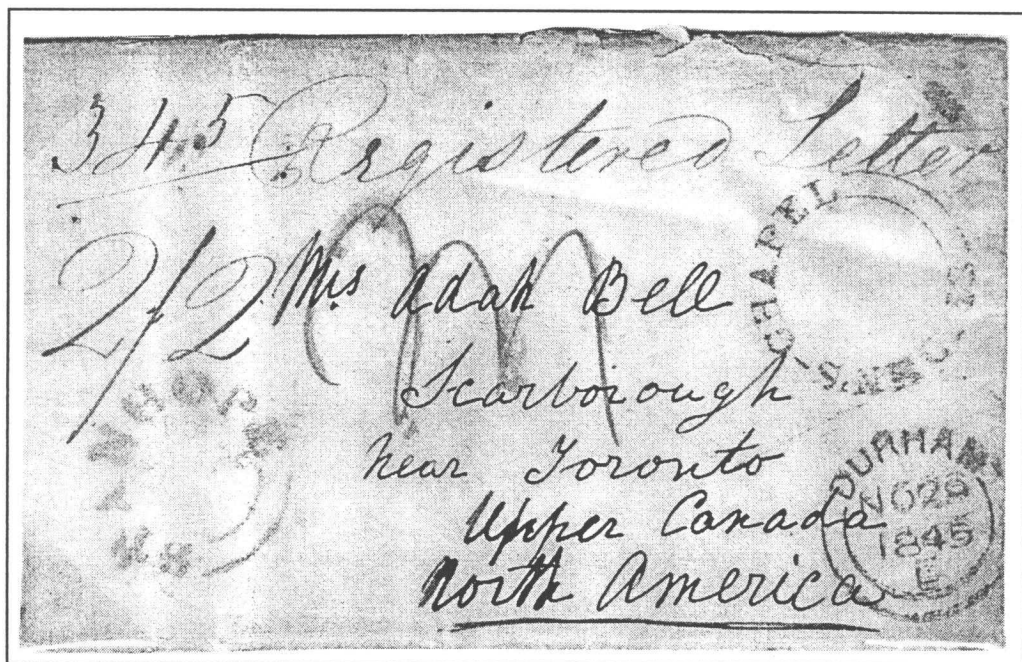 345 Registered Letter
2/2
Mrs Adah Bell
Scarborough
near Toronto
Upper Canada
North America
ST JOHN'S CHAPEL
DURHAM
NO 29
1845
E